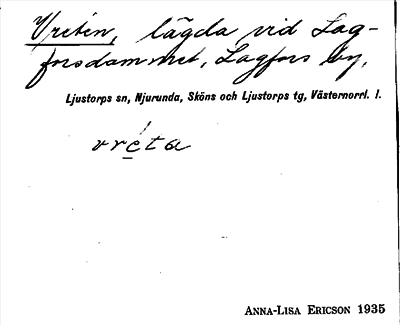 Vreten, lägda vid Lag-
forsdammet, Lagfors by,
Ljustorps sn, Njurunda, Sköns och Ljustorps tg, Västernorrl. l.
vre̲ta
ANNA-LISA ERICSON 1935